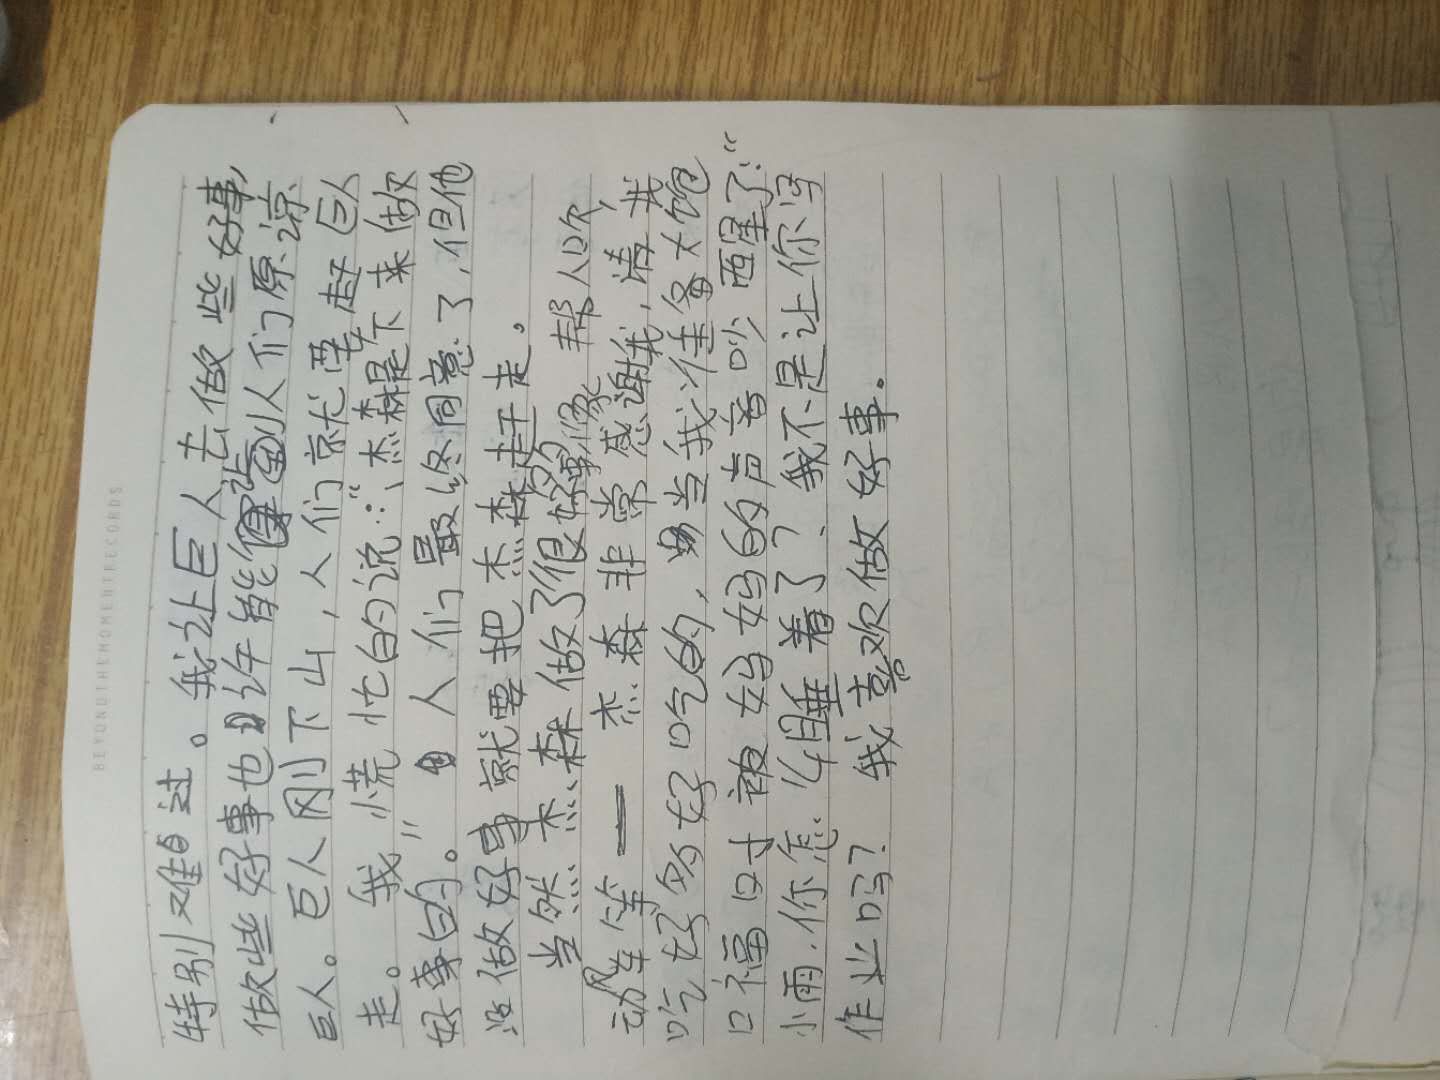 BEYONDTHEMOMENTRECORDS
特别难过。我让巨人去做些好事,
做些好事也许能得到人们原凉
巨人。巨人刚下山,人们就要赶巨人
走。我慌忙的说:“杰森是下来做
好事的。”人们最终同意了,但他
没做好事就要把杰森赶走。
当然杰森做了很多好事像帮人吹
动车等——杰森非常感谢我,请我
吃好多好吃的,当我准备大饱
口福时被妈妈的声音吵醒了:“
小雨.你怎么睡着了?我不是让你写
作业吗?我喜欢做好事。